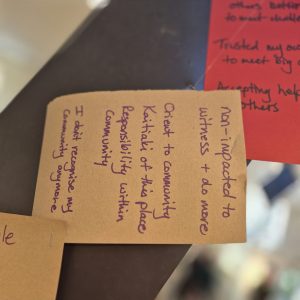 others
to meet challe
Trusted my ow
to meet big c
Accepting help
others
non-impacted to
witness + do more
Orient to community
Kaitiaki of this place
Responsibility within
community
I don't recognise my
community anymore